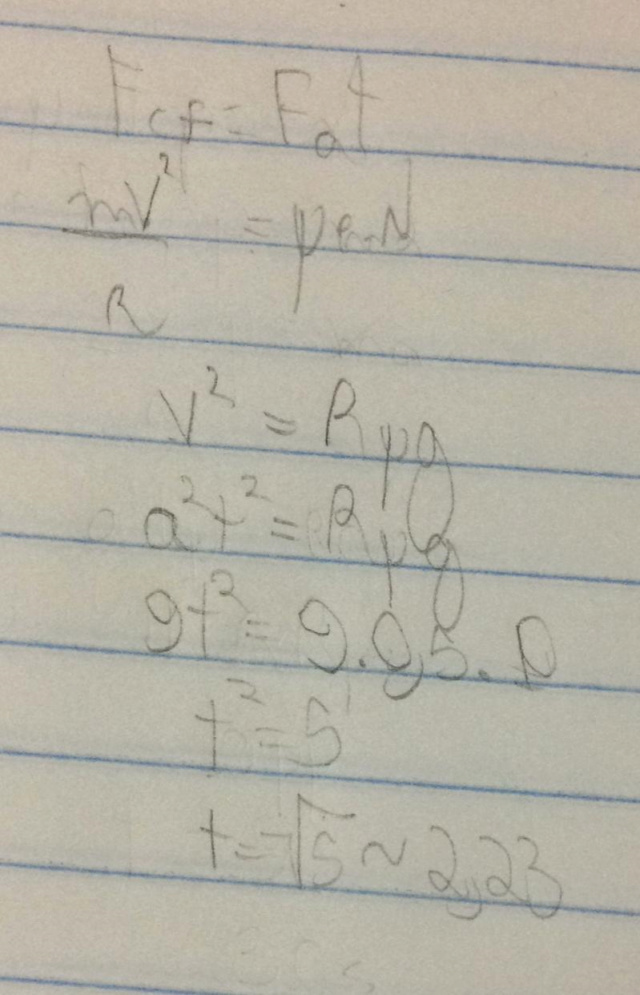 Fcf = Fat
mv² = μe.N
R
v² = Rμg
a²t² = Rμg
9t² = 9.0,5.10
t² = 5
t = √5 ~ 2,23